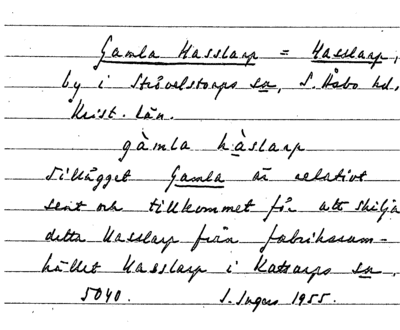 Gamla Hasslarp = Hasslarp,
by i Strövelstorps sn, S. Åsbo hd,
Krist. län.
gàmla hàslarp
Tillägget Gamla är relativt
sent och tillkommet för att skilja
detta Hasslarp från fabrikssam-
hället Hasslarp i Kattarps sn.
5040. S. Ingers 1955.